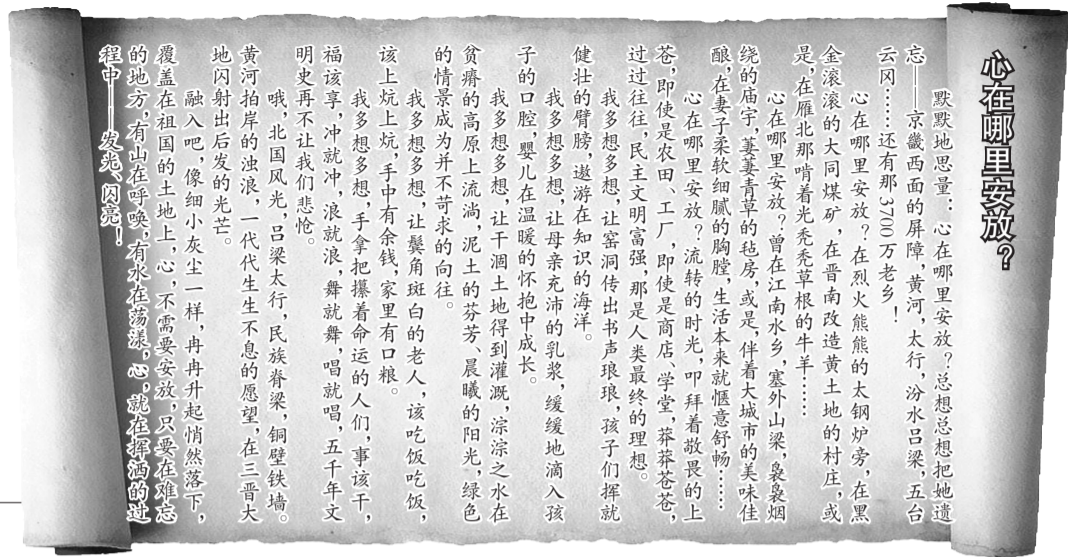 心在哪里安放？
默默地思量：心在哪里安放？总想总想把她遗
忘——京畿西面的屏障，黄河，太行，汾水吕梁，五台
云冈……还有那3700万老乡！
心在哪里安放？在烈火熊熊的太钢炉旁，在黑
金滚滚的大同煤矿，在晋南改造黄土地的村庄，或
是，在雁北那啃着光秃秃草根的牛羊……
心在哪里安放？曾在江南水乡，塞外山梁，袅袅烟
绕的庙宇，萋萋青草的毡房，或是，伴着大城市的美味佳
酿，在妻子柔软细腻的胸膛，生活本来就惬意舒畅……
心在哪里安放？流转的时光，叩拜着敬畏的上
苍，即使是农田、工厂，即使是商店、学堂，莽莽苍苍，
过过往往，民主文明富强，那是人类最终的理想。
我多想多想，让窑洞传出书声琅琅，孩子们挥就
健壮的臂膀，遨游在知识的海洋。
我多想多想，让母亲充沛的乳浆，缓缓地滴入孩
子的口腔，婴儿在温暖的怀抱中成长。
我多想多想，让干涸土地得到灌溉，淙淙之水在
贫瘠的高原上流淌，泥土的芬芳、晨曦的阳光，绿色
的情景成为并不苛求的向往。
我多想多想，让鬓角斑白的老人，该吃饭吃饭，
该上炕上炕，手中有余钱，家里有口粮。
我多想多想，手拿把攥着命运的人们，事该干，
福该享，冲就冲，浪就浪，舞就舞，唱就唱，五千年文
明史再不让我们悲怆。
哦，北国风光，吕梁太行，民族脊梁，铜壁铁墙。
黄河拍岸的浊浪，一代代生生不息的愿望，在三晋大
地闪射出后发的光芒。
融入吧，像细小灰尘一样，冉冉升起悄然落下，
覆盖在祖国的土地上，心，不需要安放，只要在难忘
的地方，有山在呼唤，有水在荡漾，心，就在挥洒的过
程中——发光、闪亮！